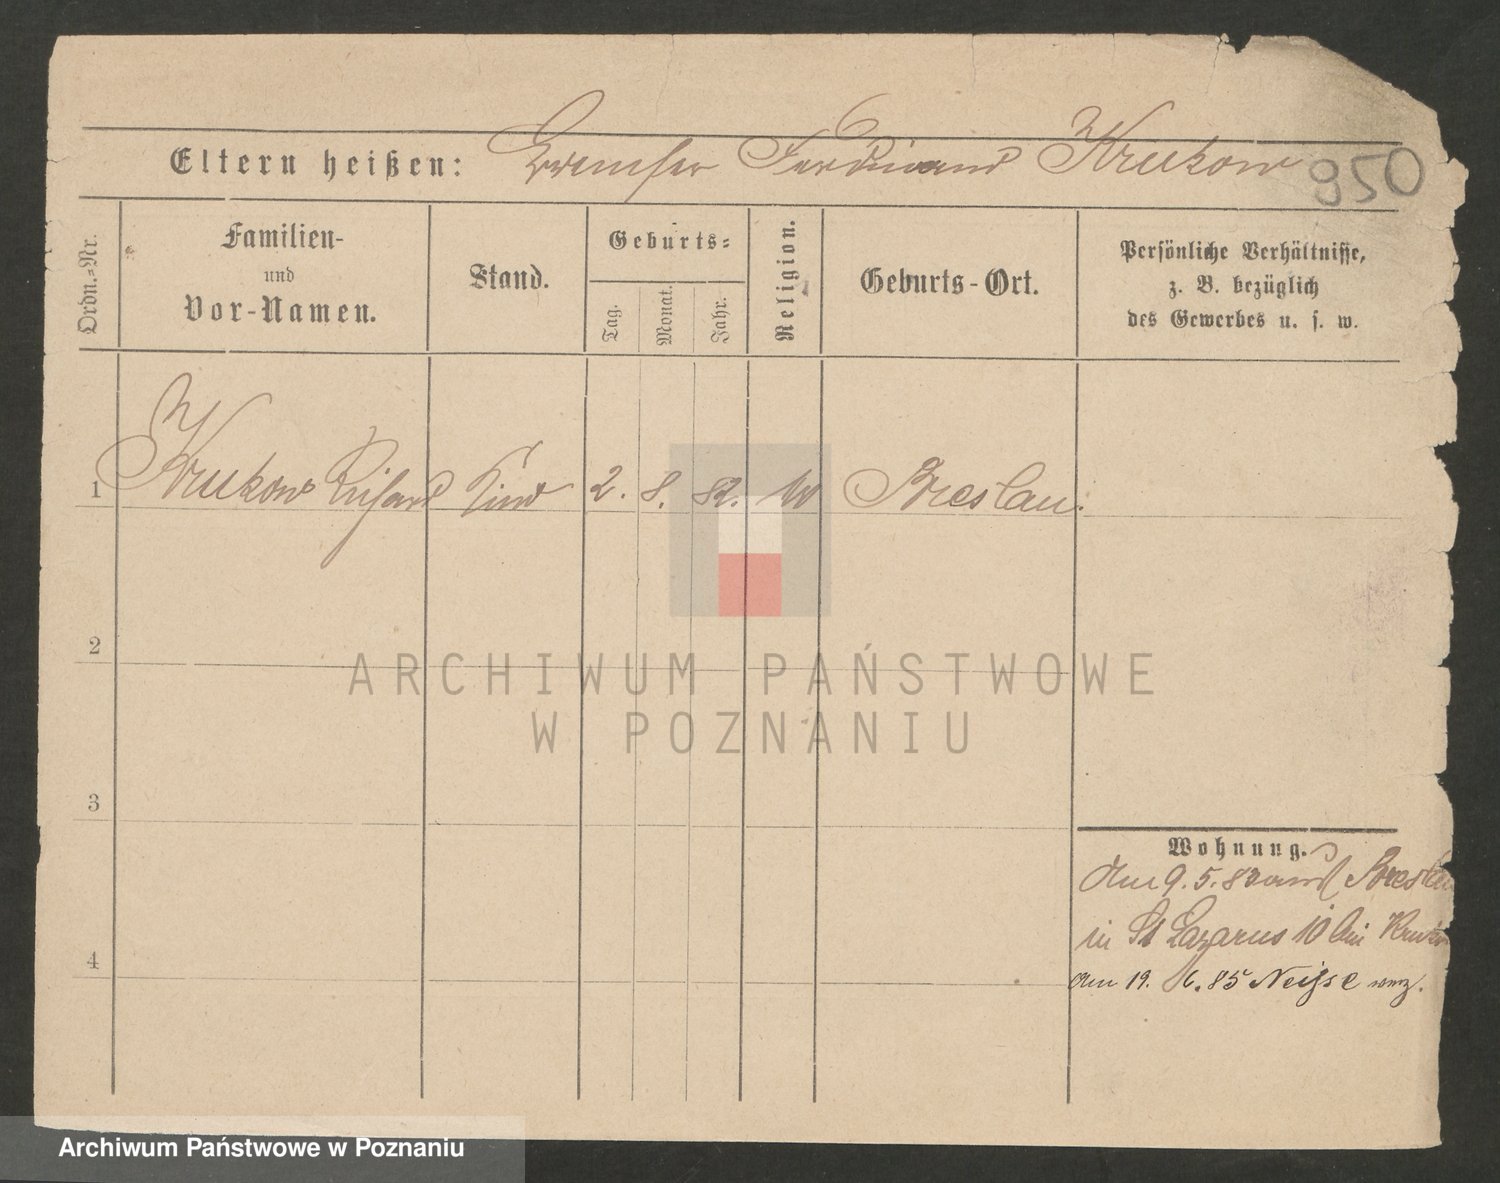 Eltern heißen: Ferdinand Krukow 950
Ordn.-Nr.
Familien-
und
Vor-Namen.
Stand.
Geburts-
Tag.
Monat.
Jahr.
Religion.
Geburts-Ort.
Persönliche Verhältnisse,
z. B. bezüglich
des Gewerbes u. s. w.
1 Krukow Richard Kind 2. 8. 82. Breslau.
2
ARCHIWUM PAŃSTWOWE
W POZNANIU
3
Wohnung.
Am 9. 5. 83 Breslau
in St Lazarus 10 bei
4
Am 19. 6. 85 Neisse verz.
Archiwum Państwowe w Poznaniu